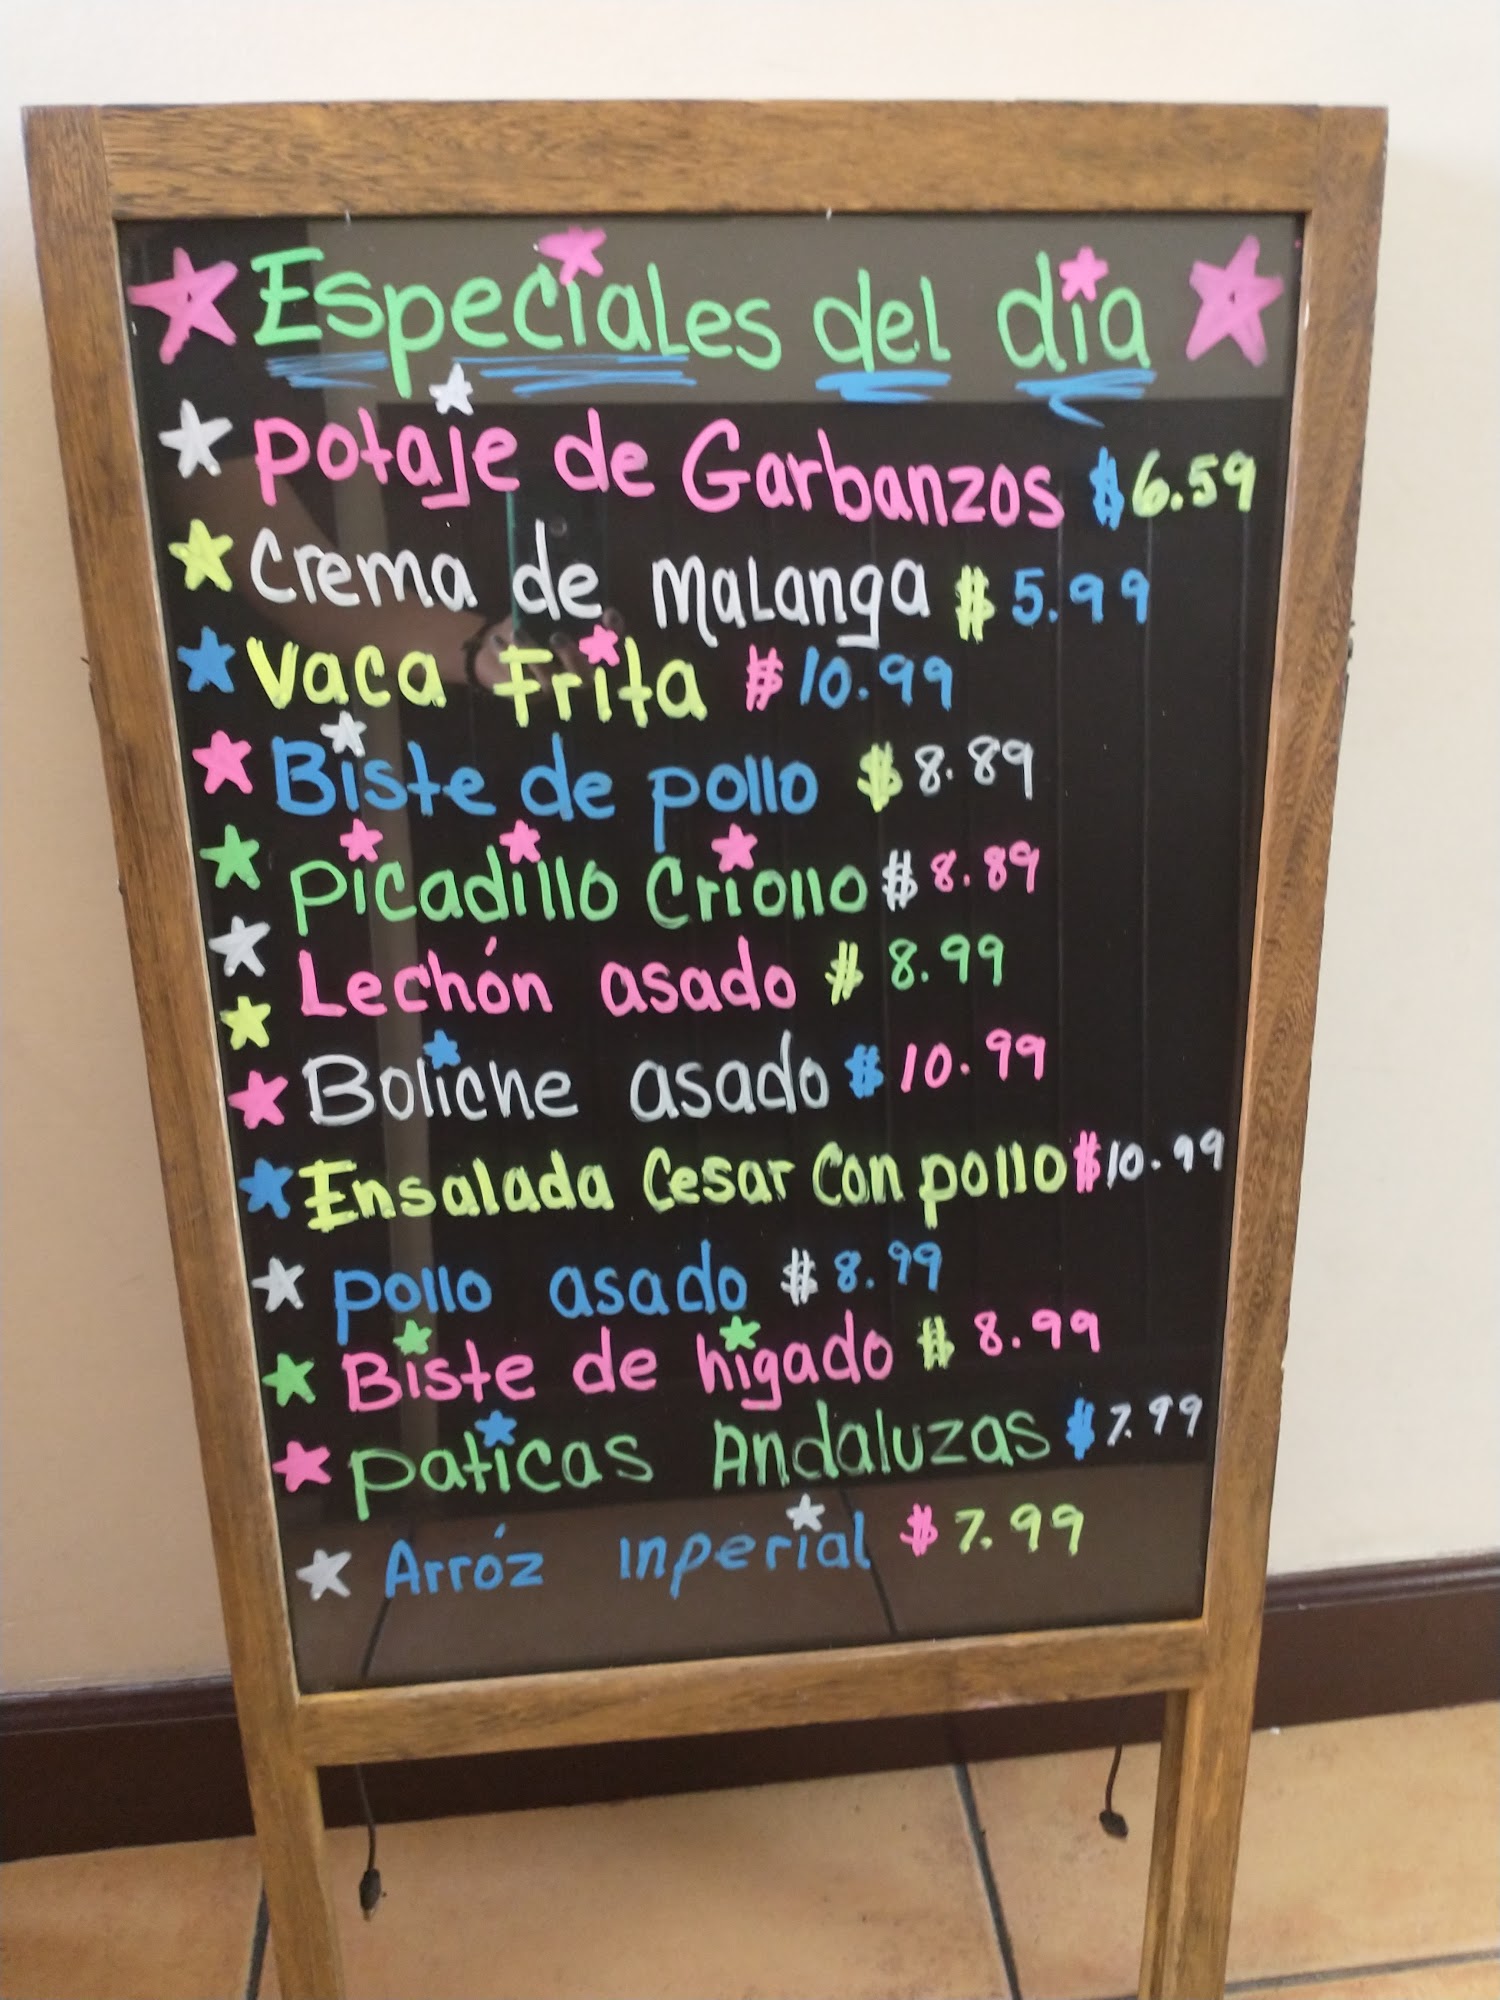 Especiales del dia
Potaje de Garbanzos $6.59
Crema de Malanga $5.99
Vaca Frita $10.99
Biste de pollo $8.89
Picadillo Criollo $8.89
Lechón asado $8.99
Boliche asado $10.99
Ensalada Cesar Con pollo $10.99
pollo asado $8.99
Biste de higado $8.99
Paticas Andaluzas $7.99
Arróz inperial $7.99